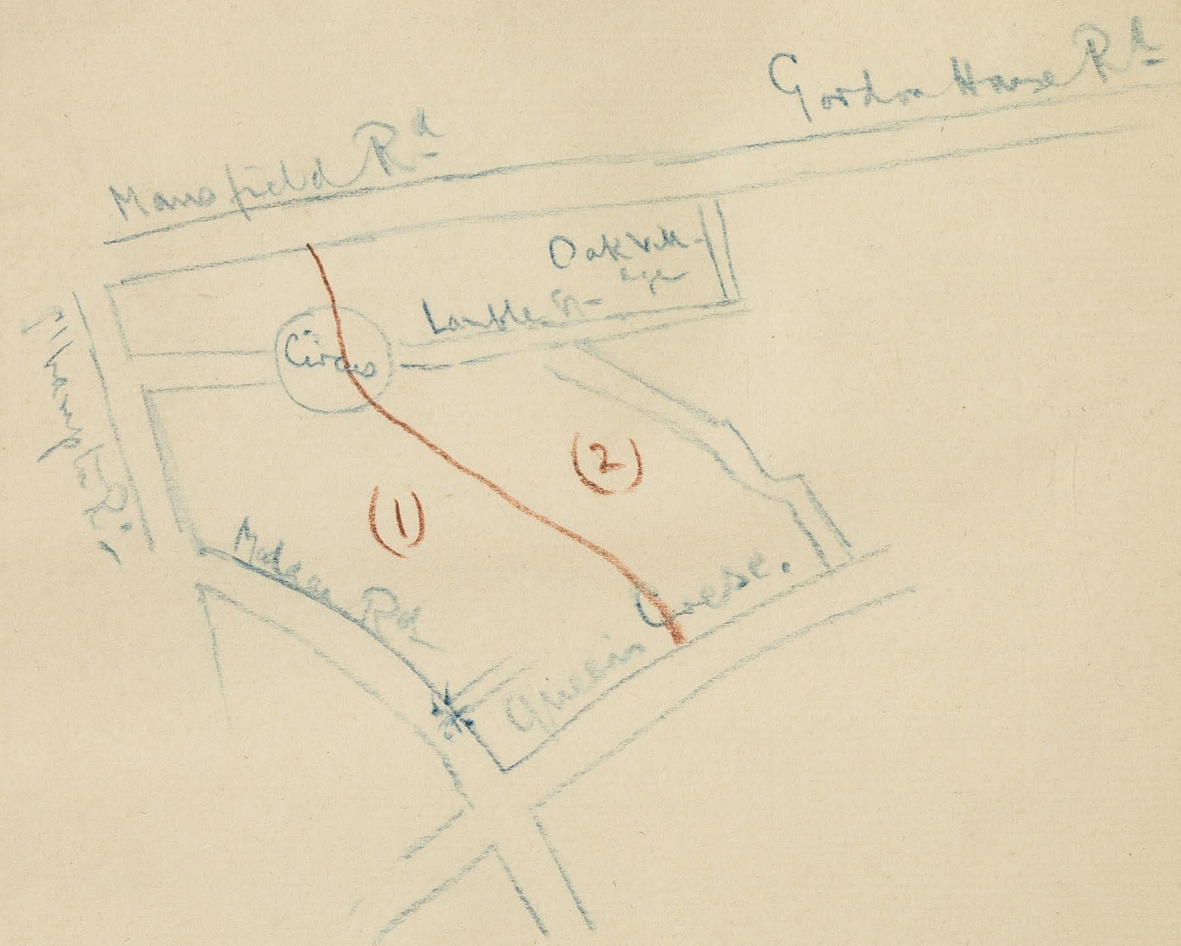 Gordon House Rd
Mansfield Rd
Oak Vill-
age
Lamble St
Circus
(2)
(1)
Malden Rd
Queen's Cresc.